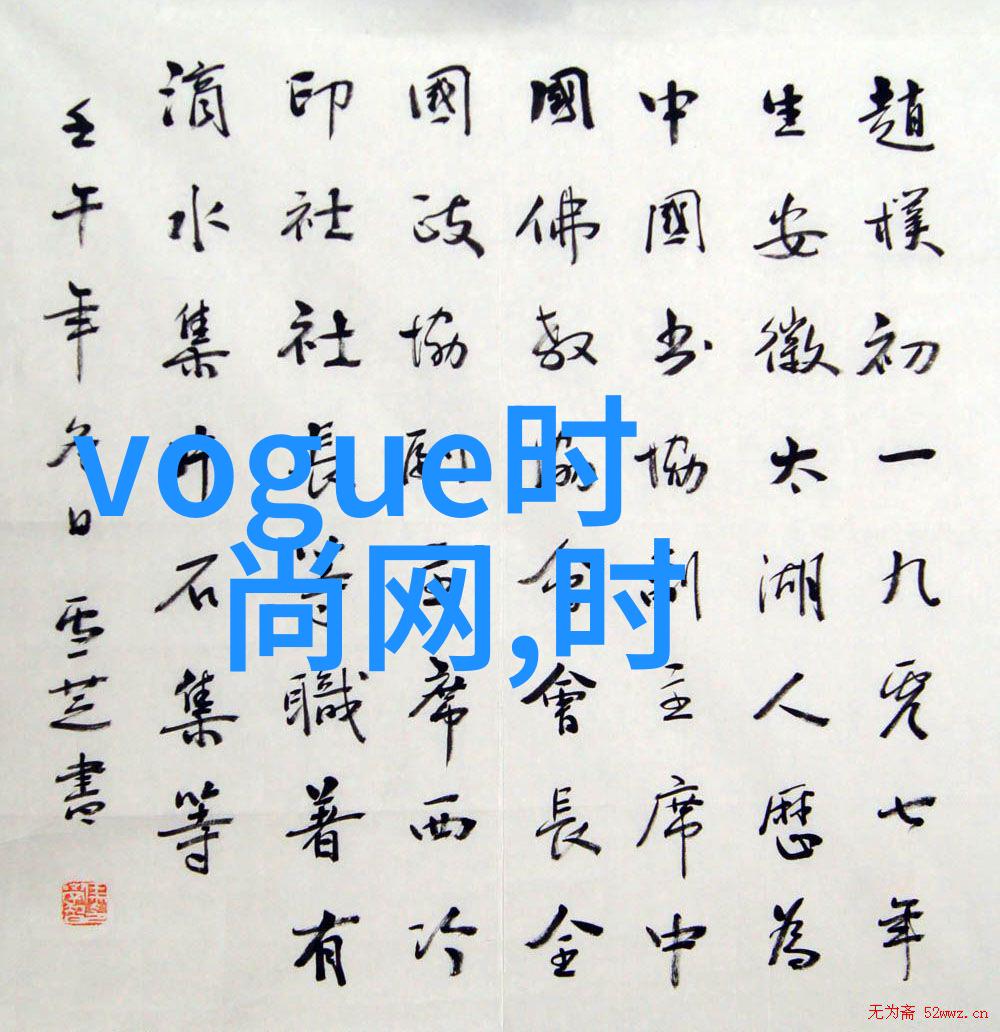 趙樸初一九零七年
生安徽太湖人歷為
中國书協副主席中
國佛教協会會長全
國政協副主席西冷
印社社長等職著有
滴水集片石集等
壬午年冬日雪芝書
vogue时
尚网,时
无为斋 52wwz.cn